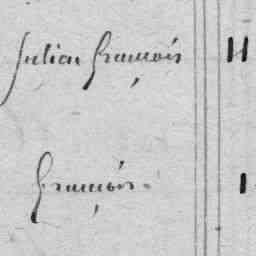 Julien François H
François 1